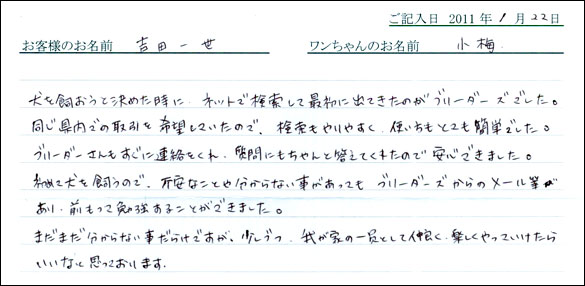 ご記入日 2011年 1月 22日
お客様のお名前 吉田一世 ワンちゃんのお名前 小梅
犬を飼おうと決めた時に、ネットで検索して最初に出てきたのがブリーダーズでした。
同じ県内での取引を希望していたので、検索もやりやすく、使いもとても簡単でした。
ブリーダーさんもすぐに連絡をくれ、質問にもちゃんと答えてくれたので安心できました。
初めて犬を飼うので、不安なことや分からない事があっても ブリーダーズからのメール等が
あり、前もって勉強することができました。
まだまだ分からない事だらけですが、少しづつ、我が家の一員として仲良く、楽しくやっていけたら
いいなと思っております。